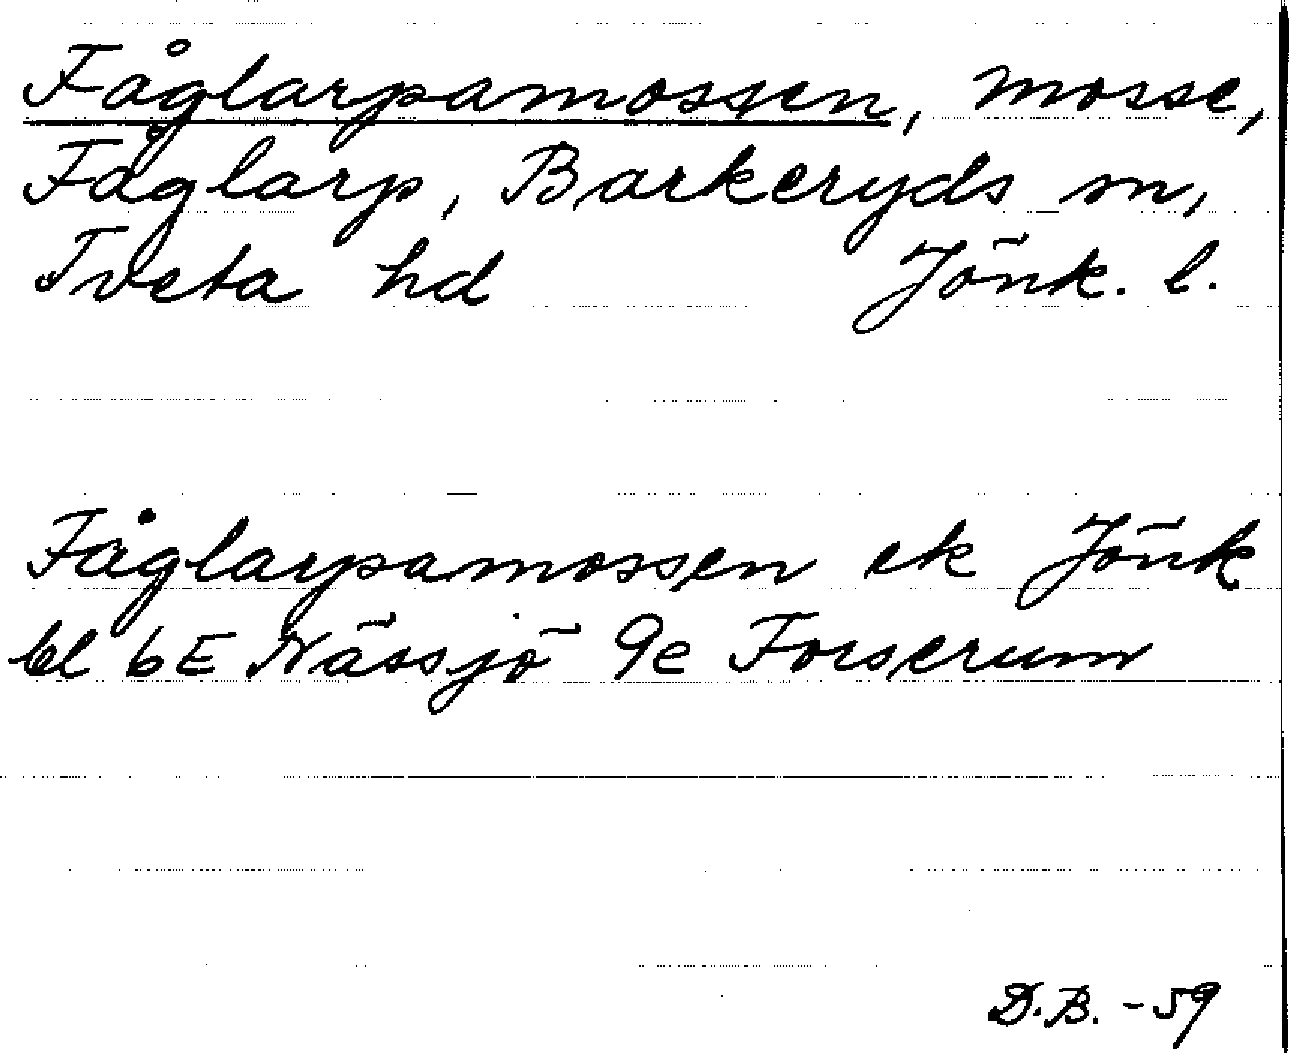 Fåglarpamossen, mosse,
Fåglarp, Barkeryds sn,
Tveta hd Jönk. l.
Fåglarpamossen ek Jönk
bl 6E Nässjö 9e Forserum
D.B. -59